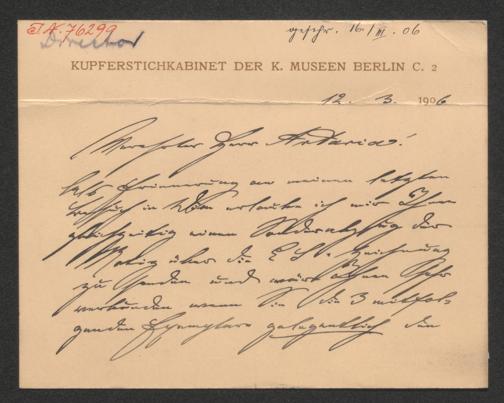 I.N. 76299
Director
gesehr. 16./III. 06
KUPFERSTICHKABINET DER K. MUSEEN BERLIN C. 2
12. 3. 1906
Verehrter Herr Artaria!
Als Erinnerung an meinen letzten
Besuch in Wien erlaube ich mir Ihnen
gleichzeitig einen Sonderabzug der
Notiz über die E. S. Zeichnung
zu senden und wäre Ihnen sehr
verbunden wenn Sie die 3 mitfol-
genden Exemplare gelegentlich den